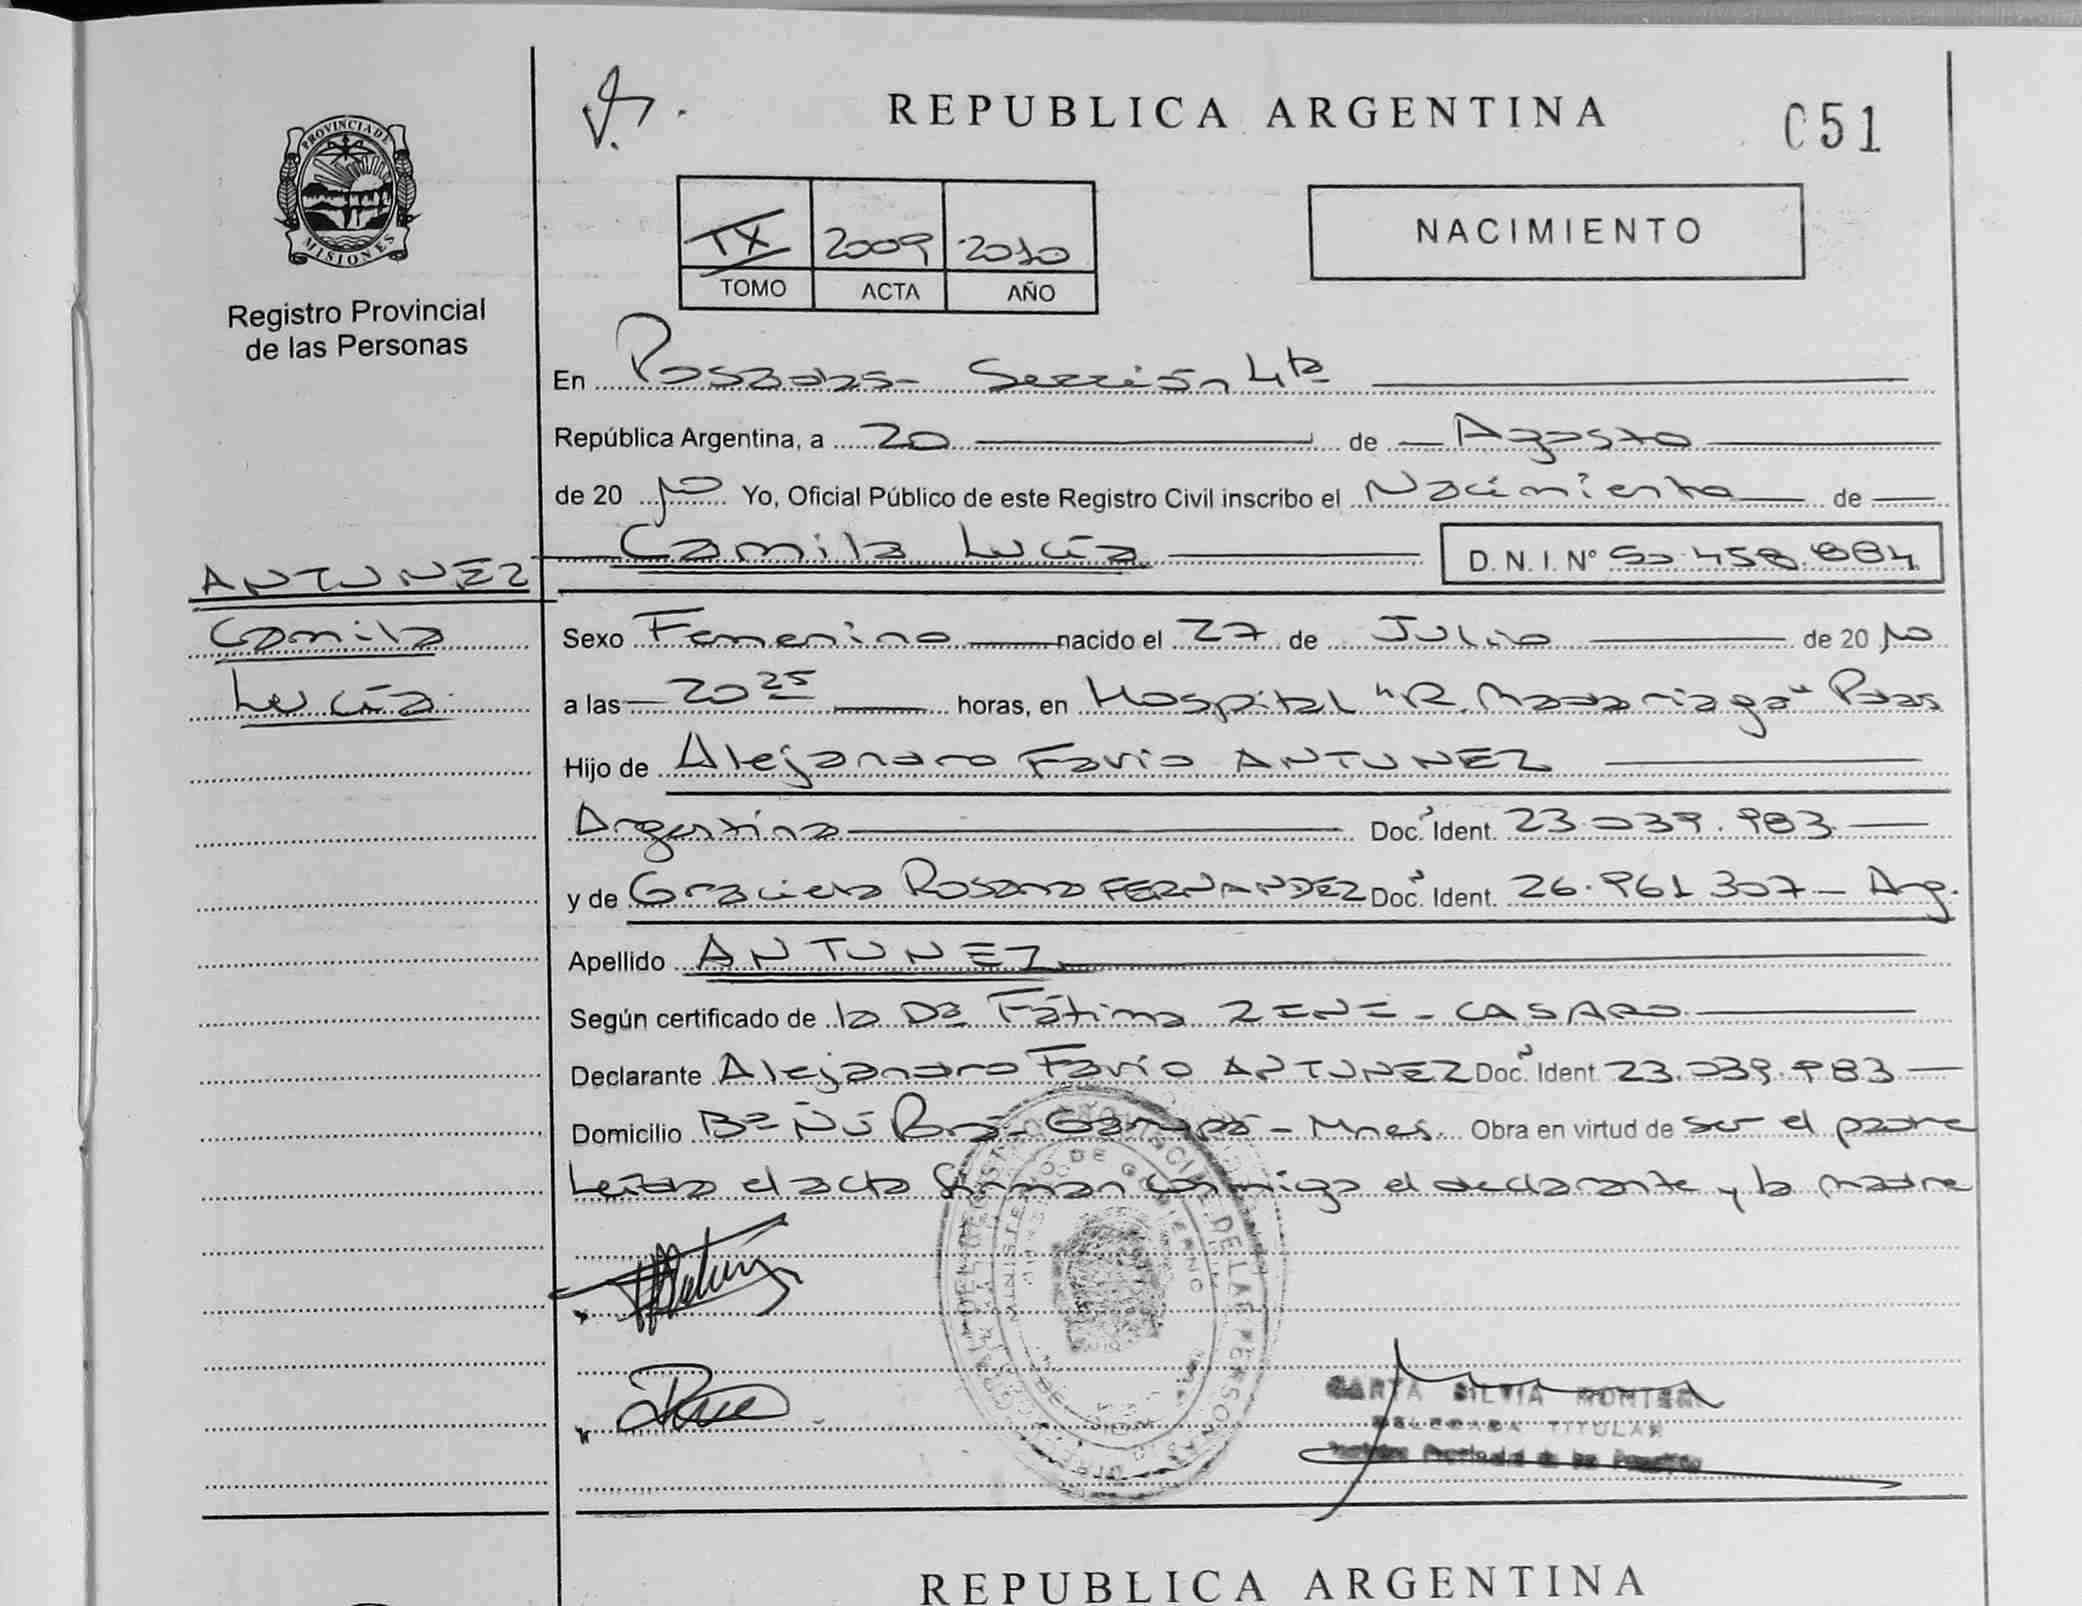 PROVINCIA DE
MISIONES
Registro Provincial
de las Personas
ANTUNEZ
Camila
Lucía
REPUBLICA ARGENTINA
051
IX 2009 2010
TOMO ACTA AÑO
NACIMIENTO
En Posadas- Sección 4ta
República Argentina, a 20 de Agosto
de 2010 Yo, Oficial Público de este Registro Civil inscribo el Nacimiento de
Camila Lucía D.N.I.Nº 50.458.884
Sexo Femenino nacido el 27 de Julio de 2010
a las 20 25 horas, en Hospital "R. Madariaga" Pdas
Hijo de Alejandro Favio ANTUNEZ
Argentina Doc. Ident. 23.039.983
y de Graciela Rosana FERNANDEZ Doc. Ident. 26.961.307 - Arg.
Apellido ANTUNEZ
Según certificado de la Dra Fátima ZENE - CASARO
Declarante Alejandro Favio ANTUNEZ Doc. Ident. 23.039.983
Domicilio Bº Ñú Porá - Garupá - Mnes. Obra en virtud de ser el padre
Leída el acta firman conmigo el declarante y la madre
MINISTERIO DE GOBIERNO
DE LAS PERSONAS
SILVIA
DELEGADA TITULAR
REPUBLICA ARGENTINA